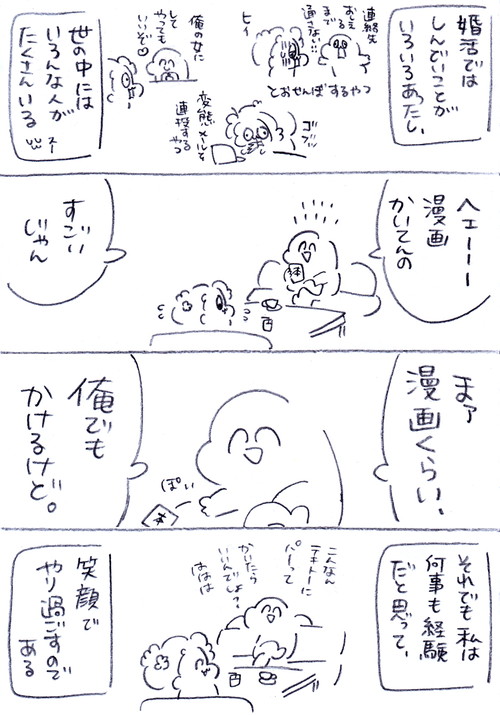 婚活では
しんどいことが
いろいろあったし、
連絡先
おしえ
るまで
通さない…!!
ヒィ
とおせんぼするやつ
俺の女に
して
やっても
いいぞ
変態メールを
連投する
やつ
世の中には
いろんな人が
たくさんいる
ヘエーーー
漫画
かいてんの
すごい
じゃん
まァ
漫画くらい、
俺でも
かけるけど。
ぽい
それでも私は
何事も経験
だと思って、
こんなん
テキトーに
パーって
かいたら
いいんでしょ?
ははは
笑顔で
やり過ごすので
ある